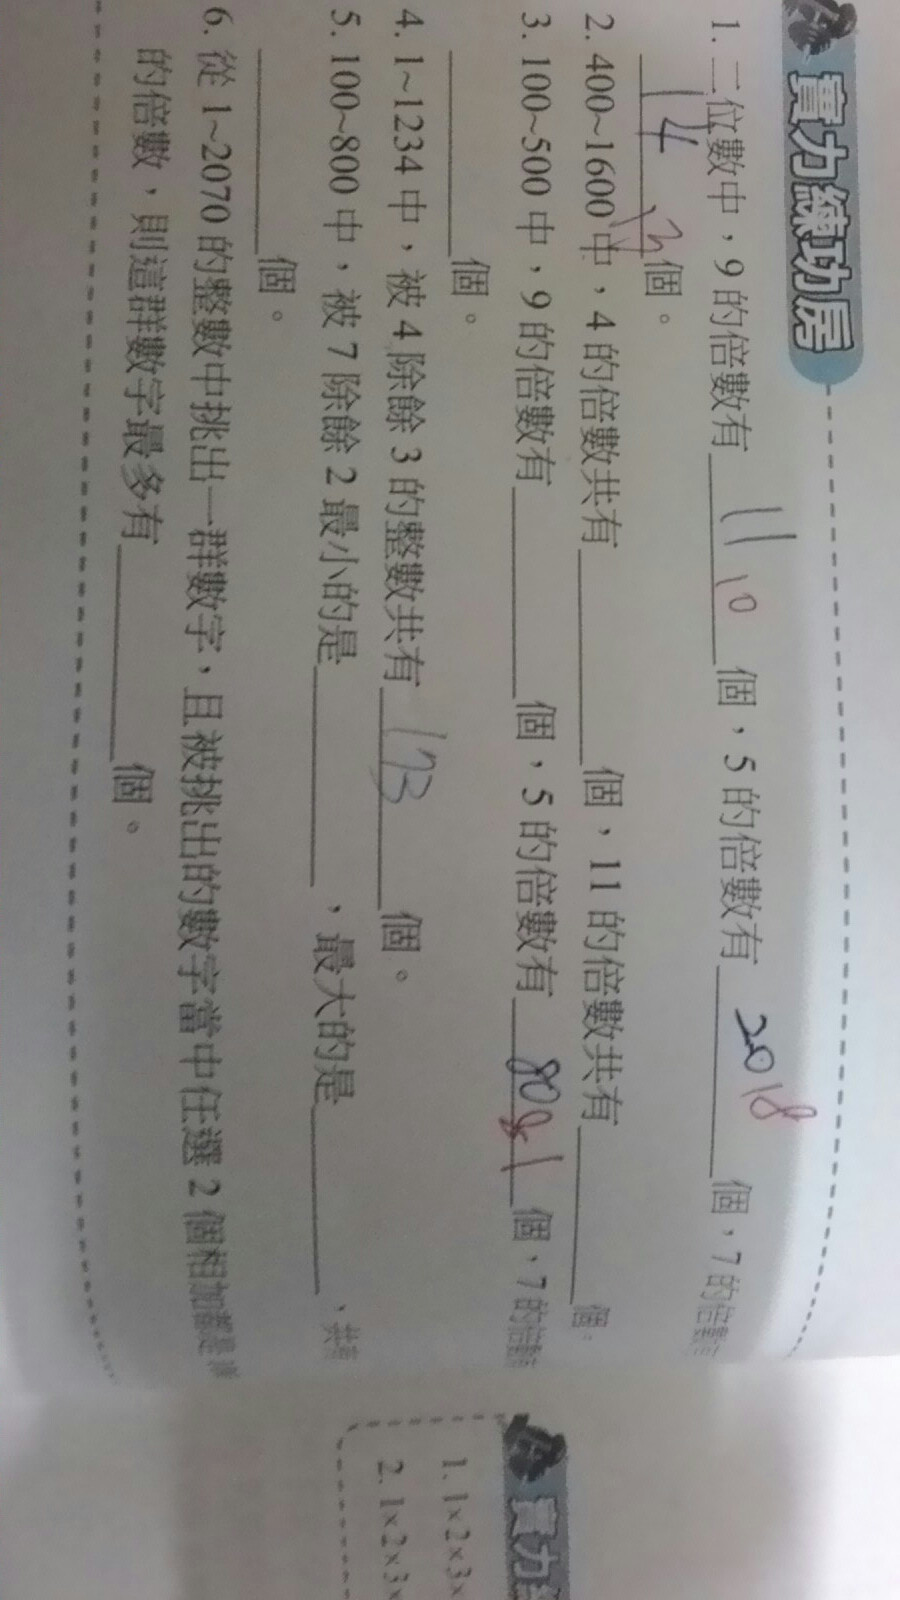 實力練功房
1. 二位數中，9 的倍數有 11 10 個，5 的倍數有 20 18 個，7 的倍數有
14 個。
2. 400~1600 中，4 的倍數共有 個，11 的倍數共有 個。
3. 100~500 中，9 的倍數有 個，5 的倍數有 80 81 個，7 的倍數有
個。
4. 1~1234 中，被 4 除餘 3 的整數共有 個。
5. 100~800 中，被 7 除餘 2 最小的是 ，最大的是 ，共有
個。
6. 從 1~2070 的整數中挑出一群數字，且被挑出的數字當中任選 2 個相加都是
的倍數，則這群數字最多有 個。
實力
1. 1×2×3×
2. 1×2×3×